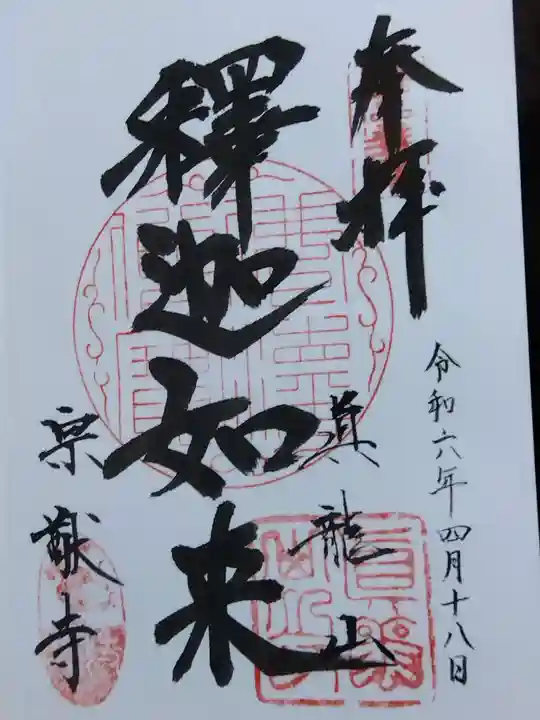 奉拝
令和六年四月十八日
真龍山
釋迦如来
宗猷寺